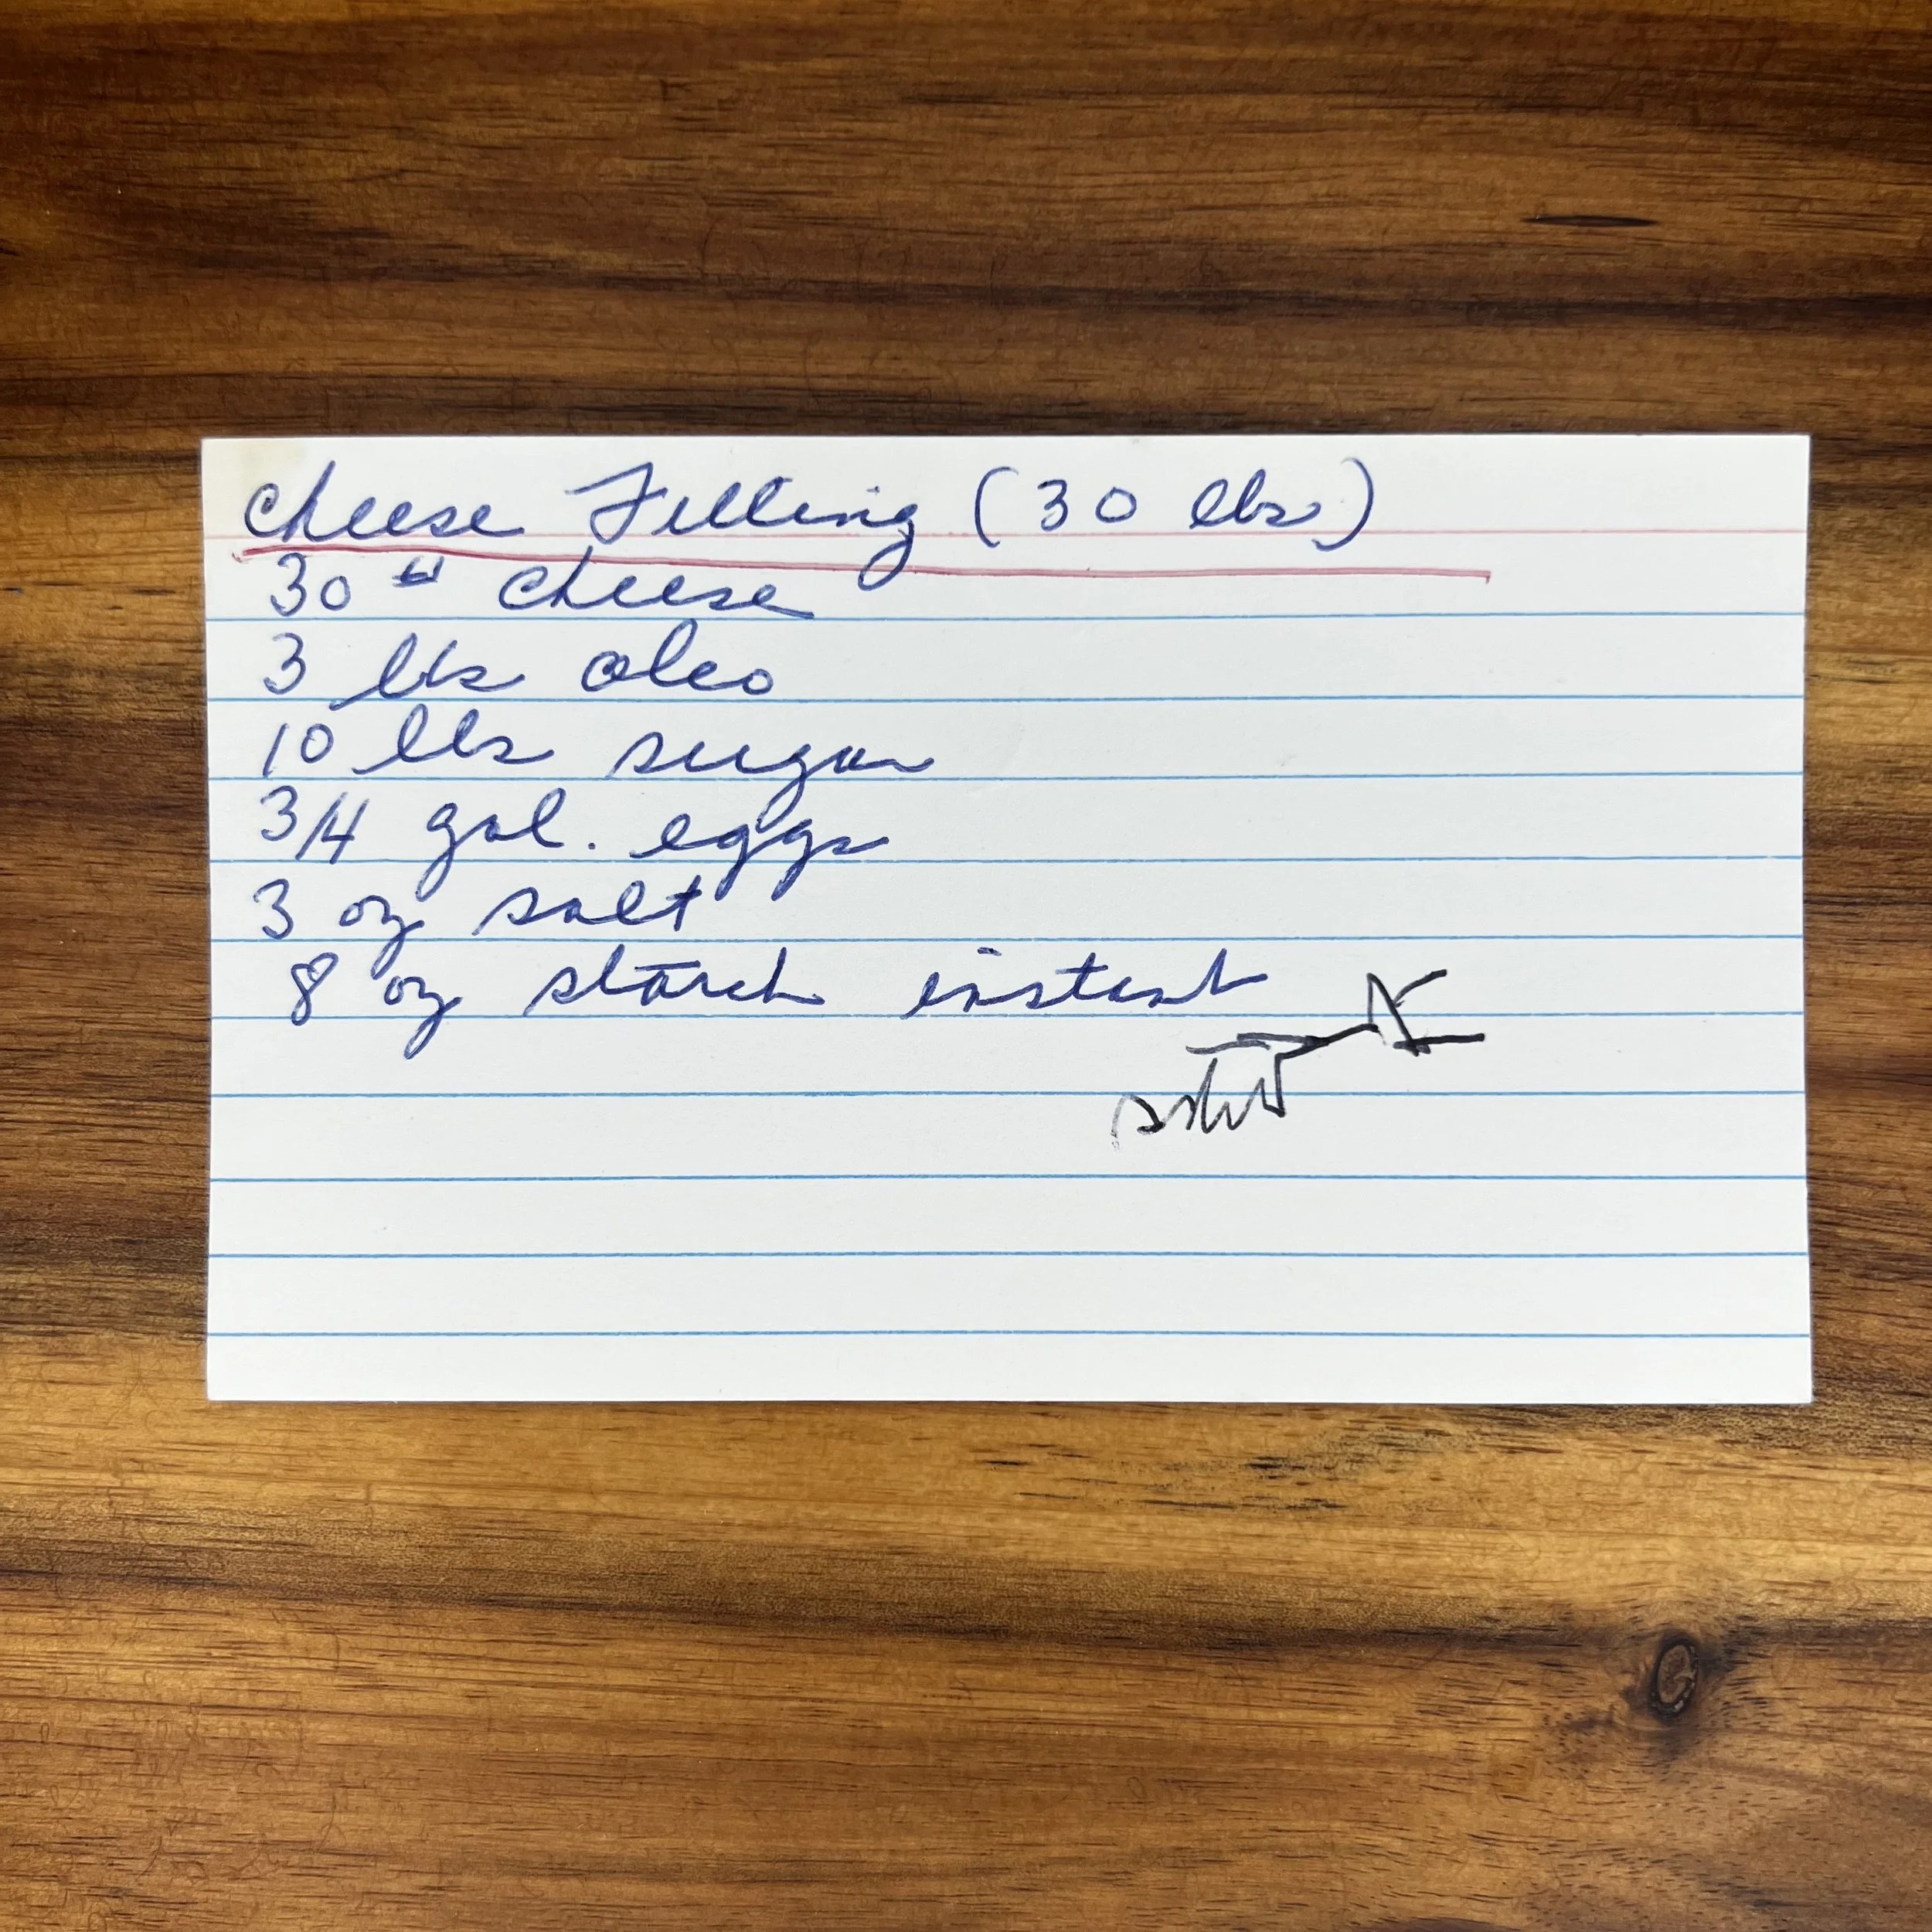 Cheese Filling (30 lbs)
30 # cheese
3 lbs oleo
10 lbs sugar
3/4 gal. eggs
3 oz salt
8 oz starch instant